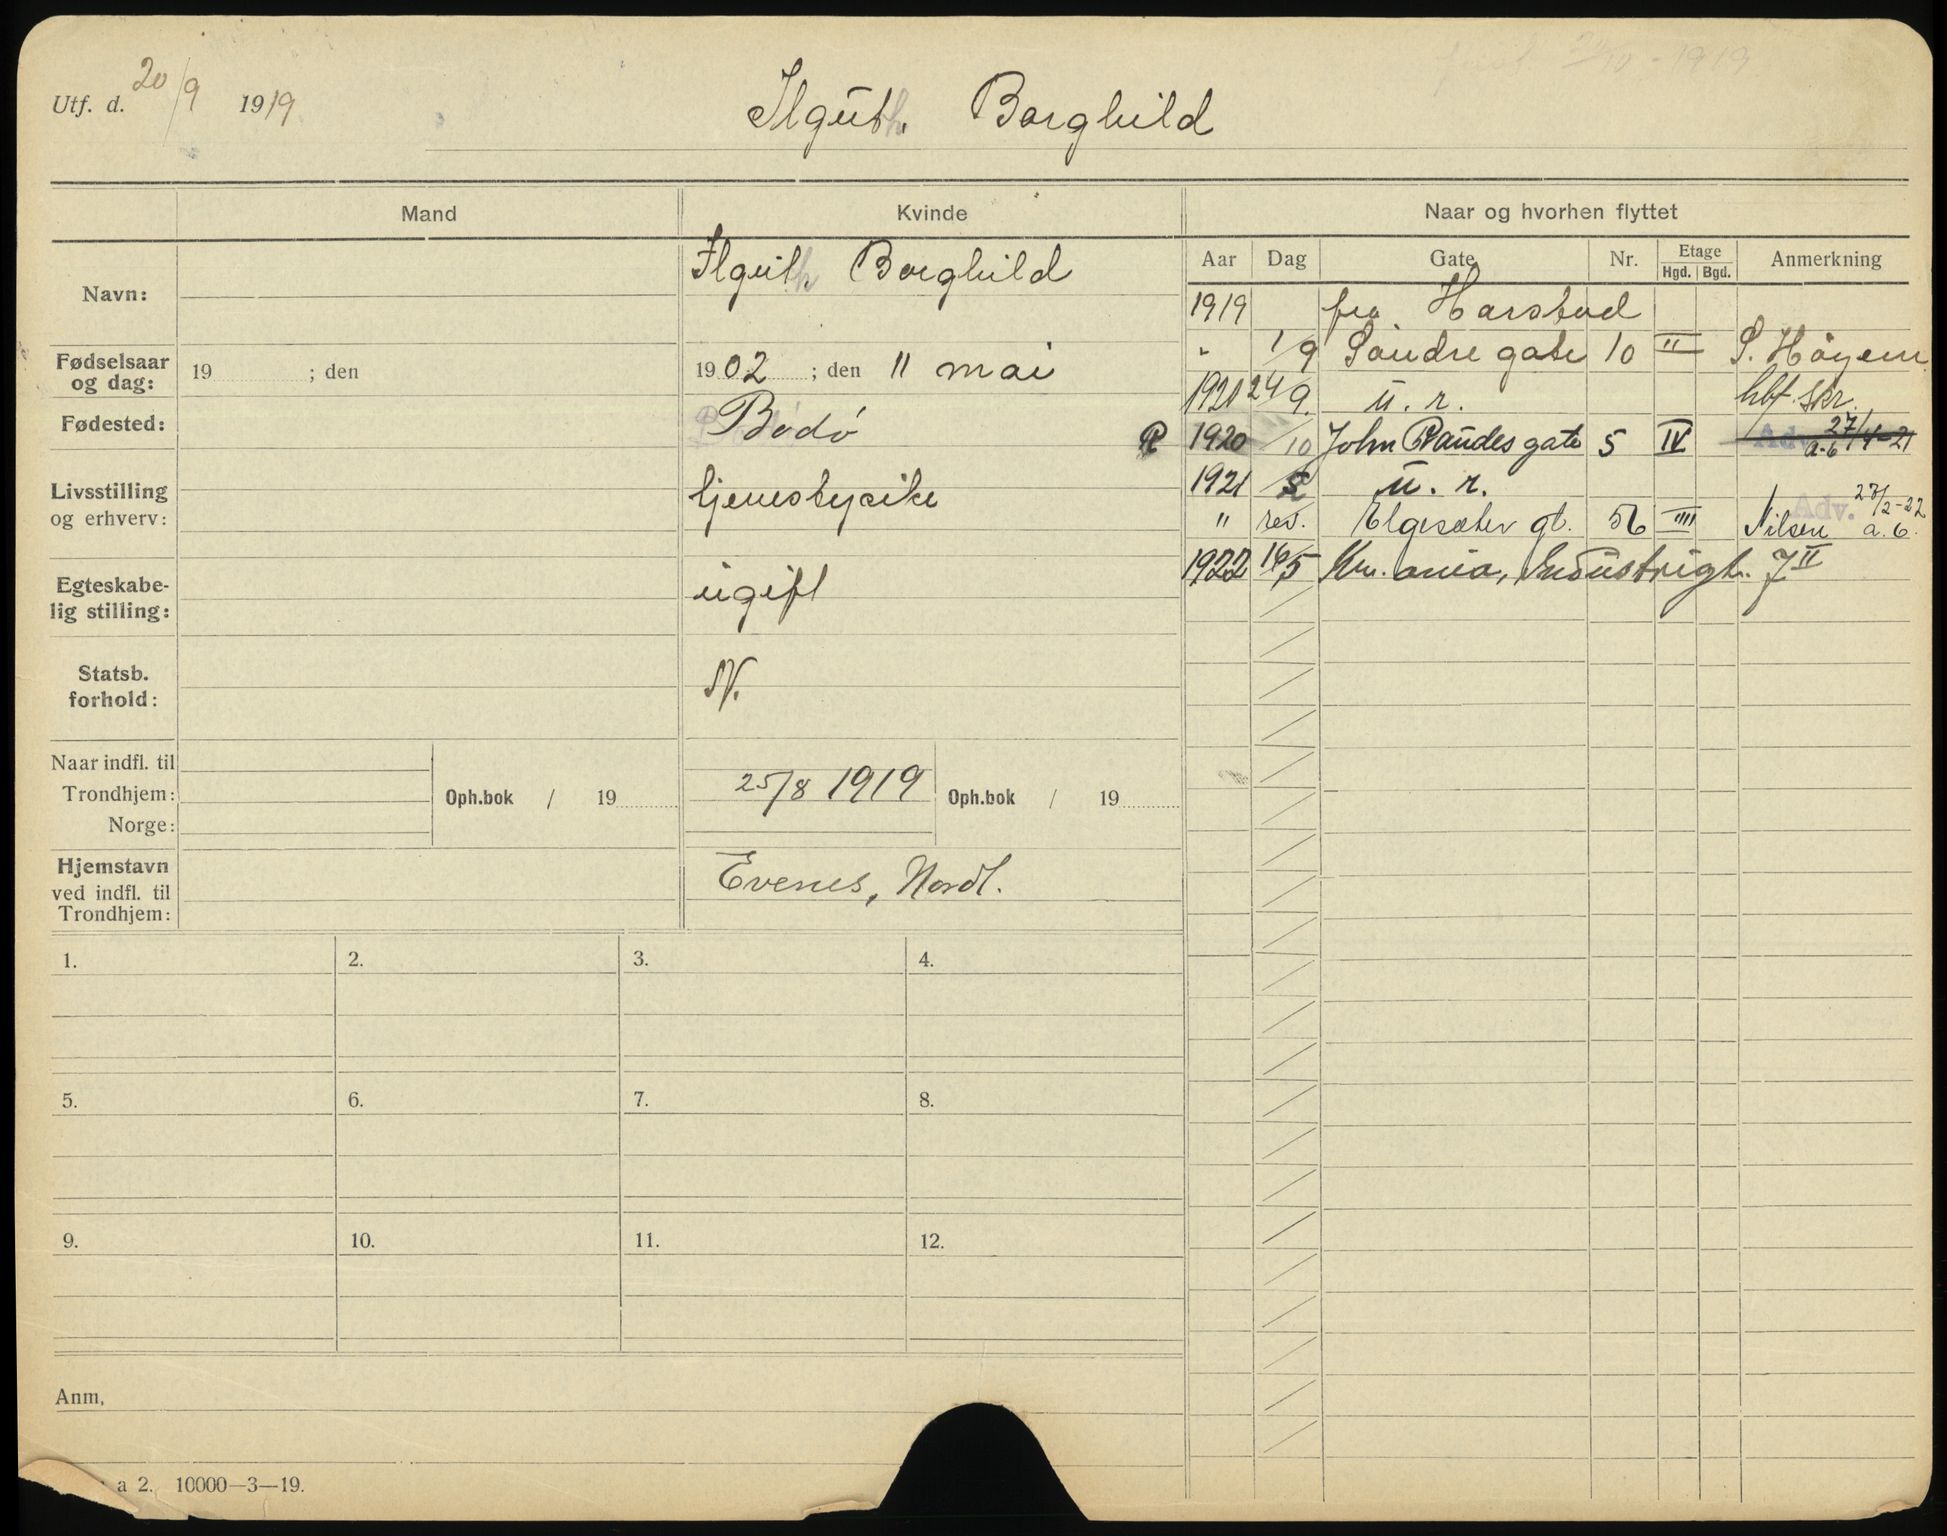 Utf. d. 20/9 1919
Ilguth, Borghild
Mand
Kvinde
Naar og hvorhen flyttet
Aar Dag Gate Nr. Etage Hgd. Bgd. Anmerkning
Navn:
Ilguth Borghild
Fødselsaar og dag:
19 ; den
1902 ; den 11 mai
Fødested:
Bodó
Livsstilling og erhverv:
tjenestepike
Egteskabelig stilling:
ugift
Statsb. forhold:
N.
Naar indfl. til
Trondhjem:
Norge:
Oph.bok / 19
25/8 1919
Oph.bok / 19
Hjemstavn ved indfl. til Trondhjem:
Evenes, Nordl.
1919 fra Harstad
" 1/9 Söndre gate 10 II S. Höyem
1920 24/9 u. r. hbf. skr.
R 1920 /10 John Raudes gate 5 IV Adv. 27/4-21 a.6
1921 5 u. r.
" rev. Elgesæter gt. 56 IIII Nilsen Adv. 27/2-22 a.6.
1922 16/5 Kr.ania, Industrigt. 7 II
1. 2. 3. 4.
5. 6. 7. 8.
9. 10. 11. 12.
Anm,
a 2. 10000—3—19.